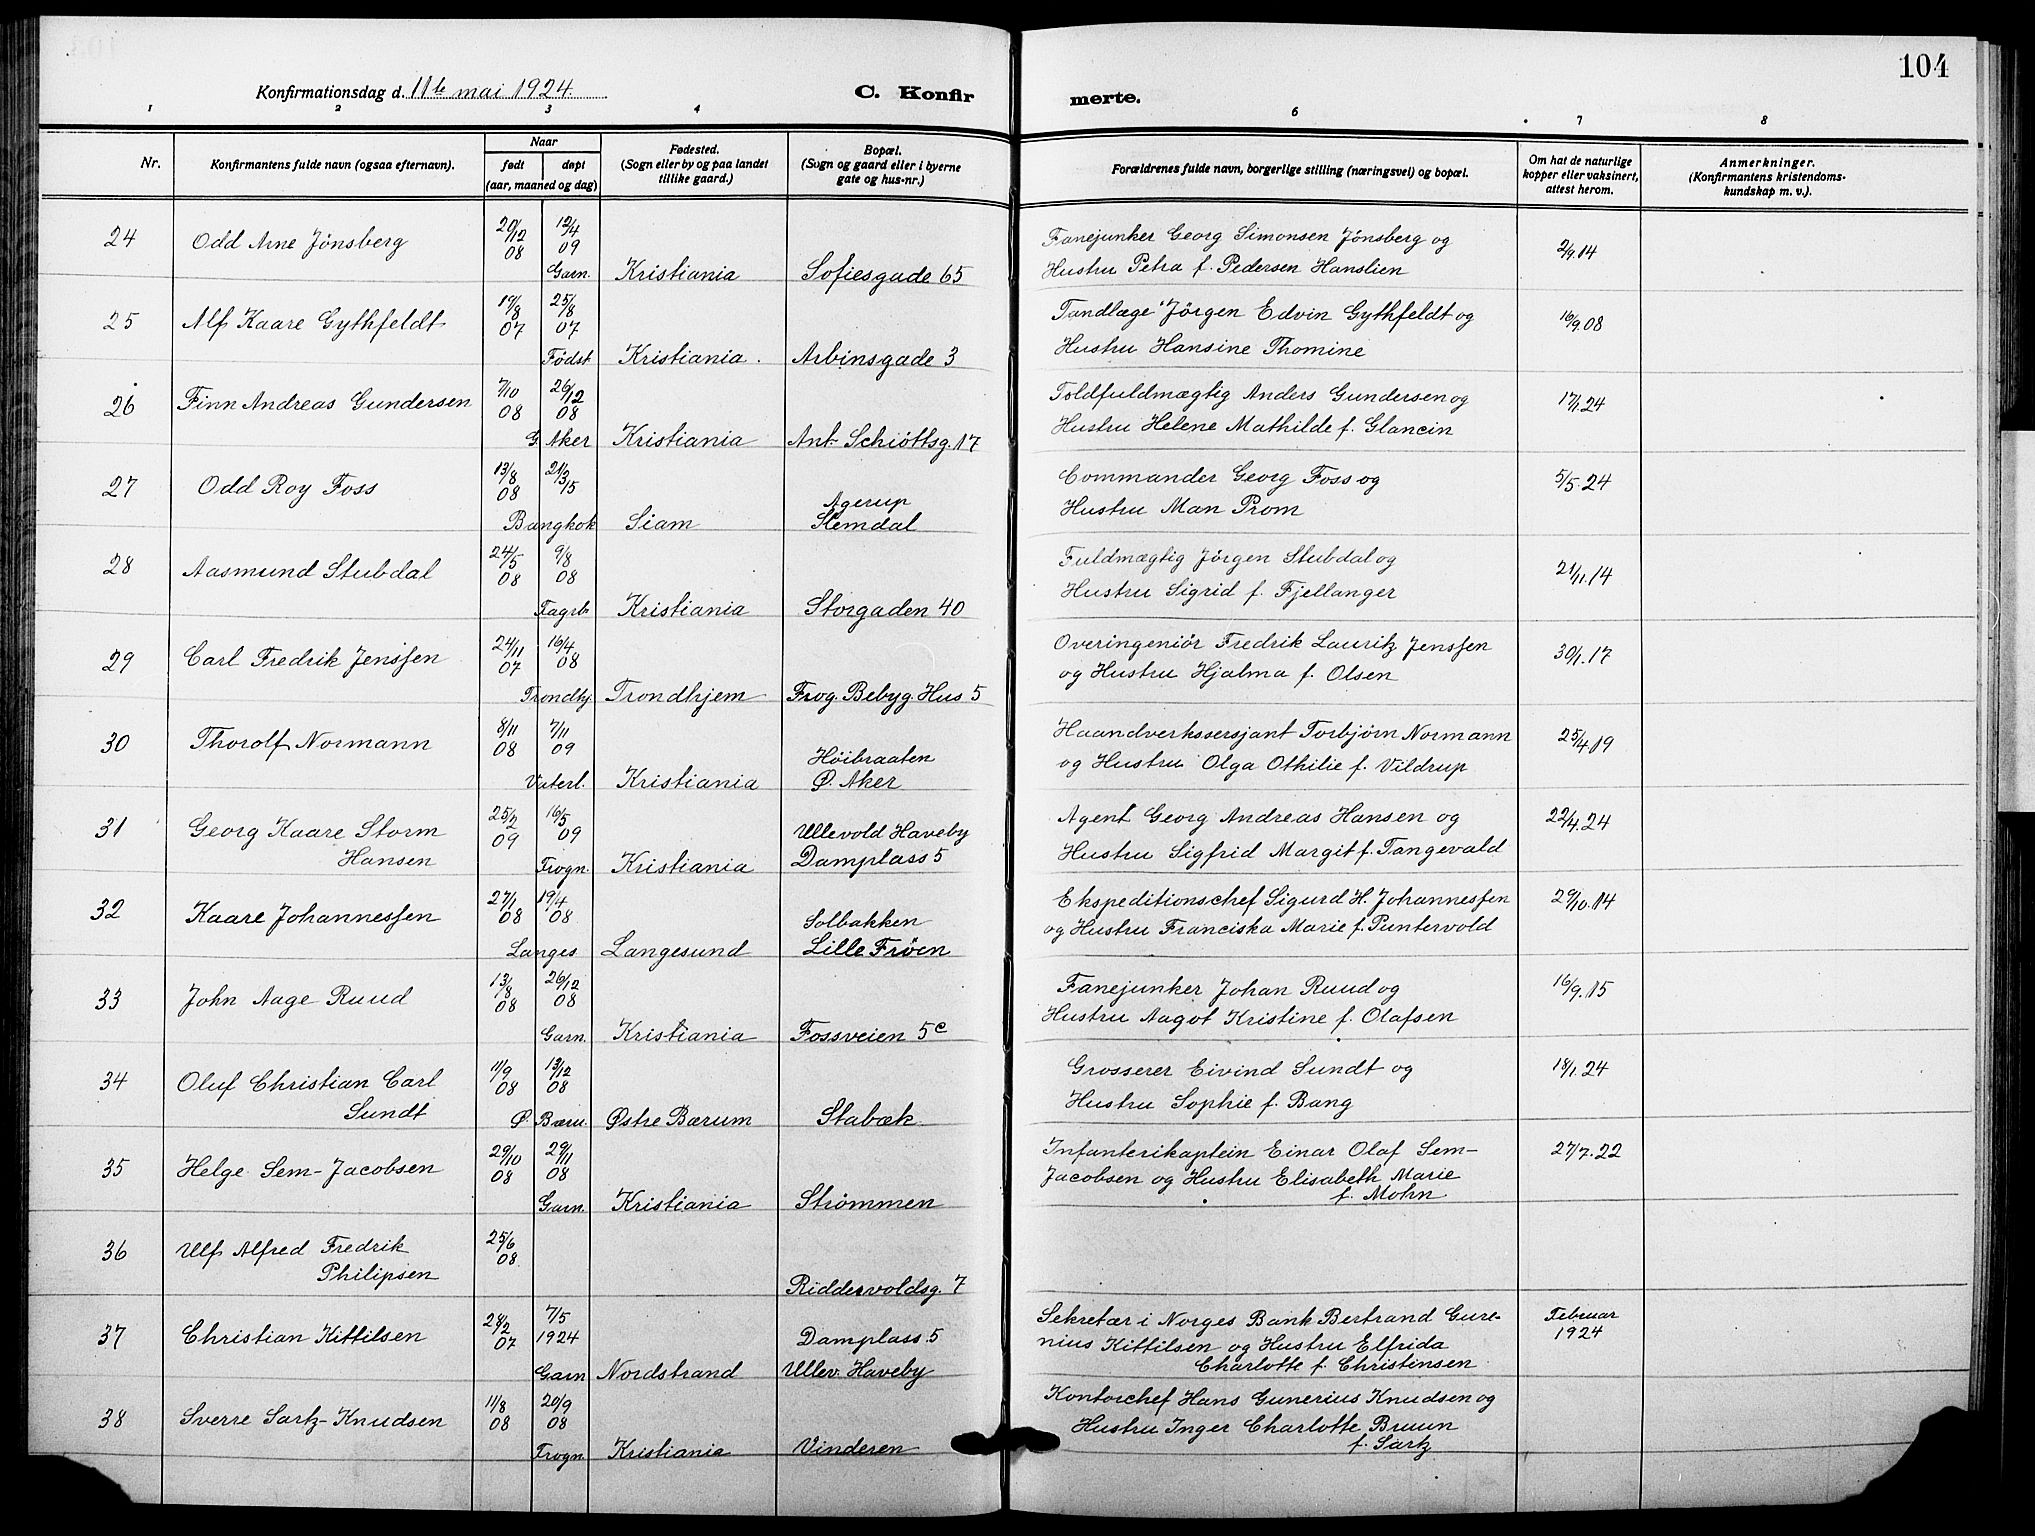 104
Konfirmationsdag d. 11te mai 1924.
C. Konfir
merte.
1 2 3 4 6 7 8
Nr.
Konfirmantens fulde navn (ogsaa efternavn).
Naar
født døpt
(aar, maaned og dag)
Fødested.
(Sogn eller by og paa landet
tillike gaard.)
Bopæl.
(Sogn og gaard eller i byerne
gate og hus-nr.)
Forældrenes fulde navn, borgerlige stilling (næringsvei) og bopæl.
Om hat de naturlige
kopper eller vaksinert,
attest herom.
Anmerkninger.
(Konfirmantens kristendoms-
kundskap m. v.).
24 Odd Arne Jönsberg 20/12 08 12/4 09 Fanejunker Georg Simonsen Jönsberg og 2/9.14
Garn. Kristiania Sofiesgade 65 Hustru Petra f. Pedersen Hanslien
25 Alf Kaare Gythfeldt 19/8 07 25/8 07 Tandlæge Jörgen Edvin Gythfeldt og 16/9.08
Födst. Kristiania. Arbinsgade 3 Hustru Hansine Thomine
26 Finn Andreas Gundersen 7/10 08 26/12 08 Toldfuldmægtig Anders Gundersen og 17/1.24
G. Aker Kristiania Ant. Schiöttsg. 17 Hustru Helene Mathilde f. Glancin
27 Odd Roy Foss 13/8 08 21/3/15 Commander Georg Foss og 5/5.24
Agerup
Bangkok Siam Slemdal Hustru Man Prom
28 Aasmund Stubdal 24/5 08 9/8 08 Fuldmægtig Jörgen Stubdal og 21/11.14
Fagrb Kristiania Storgaden 40 Hustru Sigrid f. Fjellanger
29 Carl Fredrik Jenssen 24/11 07 16/4 08 Overingeniör Fredrik Lauritz Jenssen 30/1.17
Trondhj. Trondhjem Frog. Bebyg. Hus 5 og Hustru Hjalma f. Olsen
30 Thorolf Normann 8/11 08 7/11 09 Haandverkssersjant Torbjörn Normann 25/4.19
Höibraaten
Vaterl. Kristiania Ø. Aker og Hustru Olga Othilie f. Vildrup
31 Georg Kaare Storm 25/2 09 16/5 09 Ullevold Haveby Agent Georg Andreas Hansen og 22/4.24
Hansen Frogn. Kristiania Damplass 5 Hustru Sigfrid Margit f. Tangevald
32 Kaare Johannessen 27/1 08 19/4 08 Solbakken Ekspeditionschef Sigurd H. Johannessen 29/10.14
Langes Langesund Lille Fröen og Hustru Franciska Marie f. Puntervold
33 John Aage Ruud 13/8 08 26/12 08 Fanejunker Johan Ruud og 16/9.15
Garn. Kristiania Fossveien 5c Hustru Aagot Kristine f. Olafsen
34 Oluf Christian Carl 11/9 08 13/12 08 Grosserer Eivind Sundt og 18/1.24
Sundt Ø. Bæru. Østre Bærum Stabæk. Hustru Sophie f. Bang
35 Helge Sem-Jacobsen 29/10 08 29/11 08 Infanterikaptein Einar Olaf Sem- 27/7.22
Garn. Kristiania Strømmen Jacobsen og Hustru Elisabeth Marie
f. Mohn
36 Ulf Alfred Fredrik 25/6 08
Philipsen Riddervoldsg. 7
37 Christian Kittilsen 28/2 07 7/5 1924 Damplass 5 Sekretær i Norges Bank Bertrand Gure- Februar 1924
nius Kittilsen og Hustru Elfrida
Garn Nordstrand Ullev. Haveby Charlotte f. Christinsen
38 Sverre Sartz-Knudsen 11/8 08 20/9 08 Kontorchef Hans Gunerius Knudsen og
Frogn. Kristiania Vinderen Hustru Inger Charlotte Bruun
f. Sartz